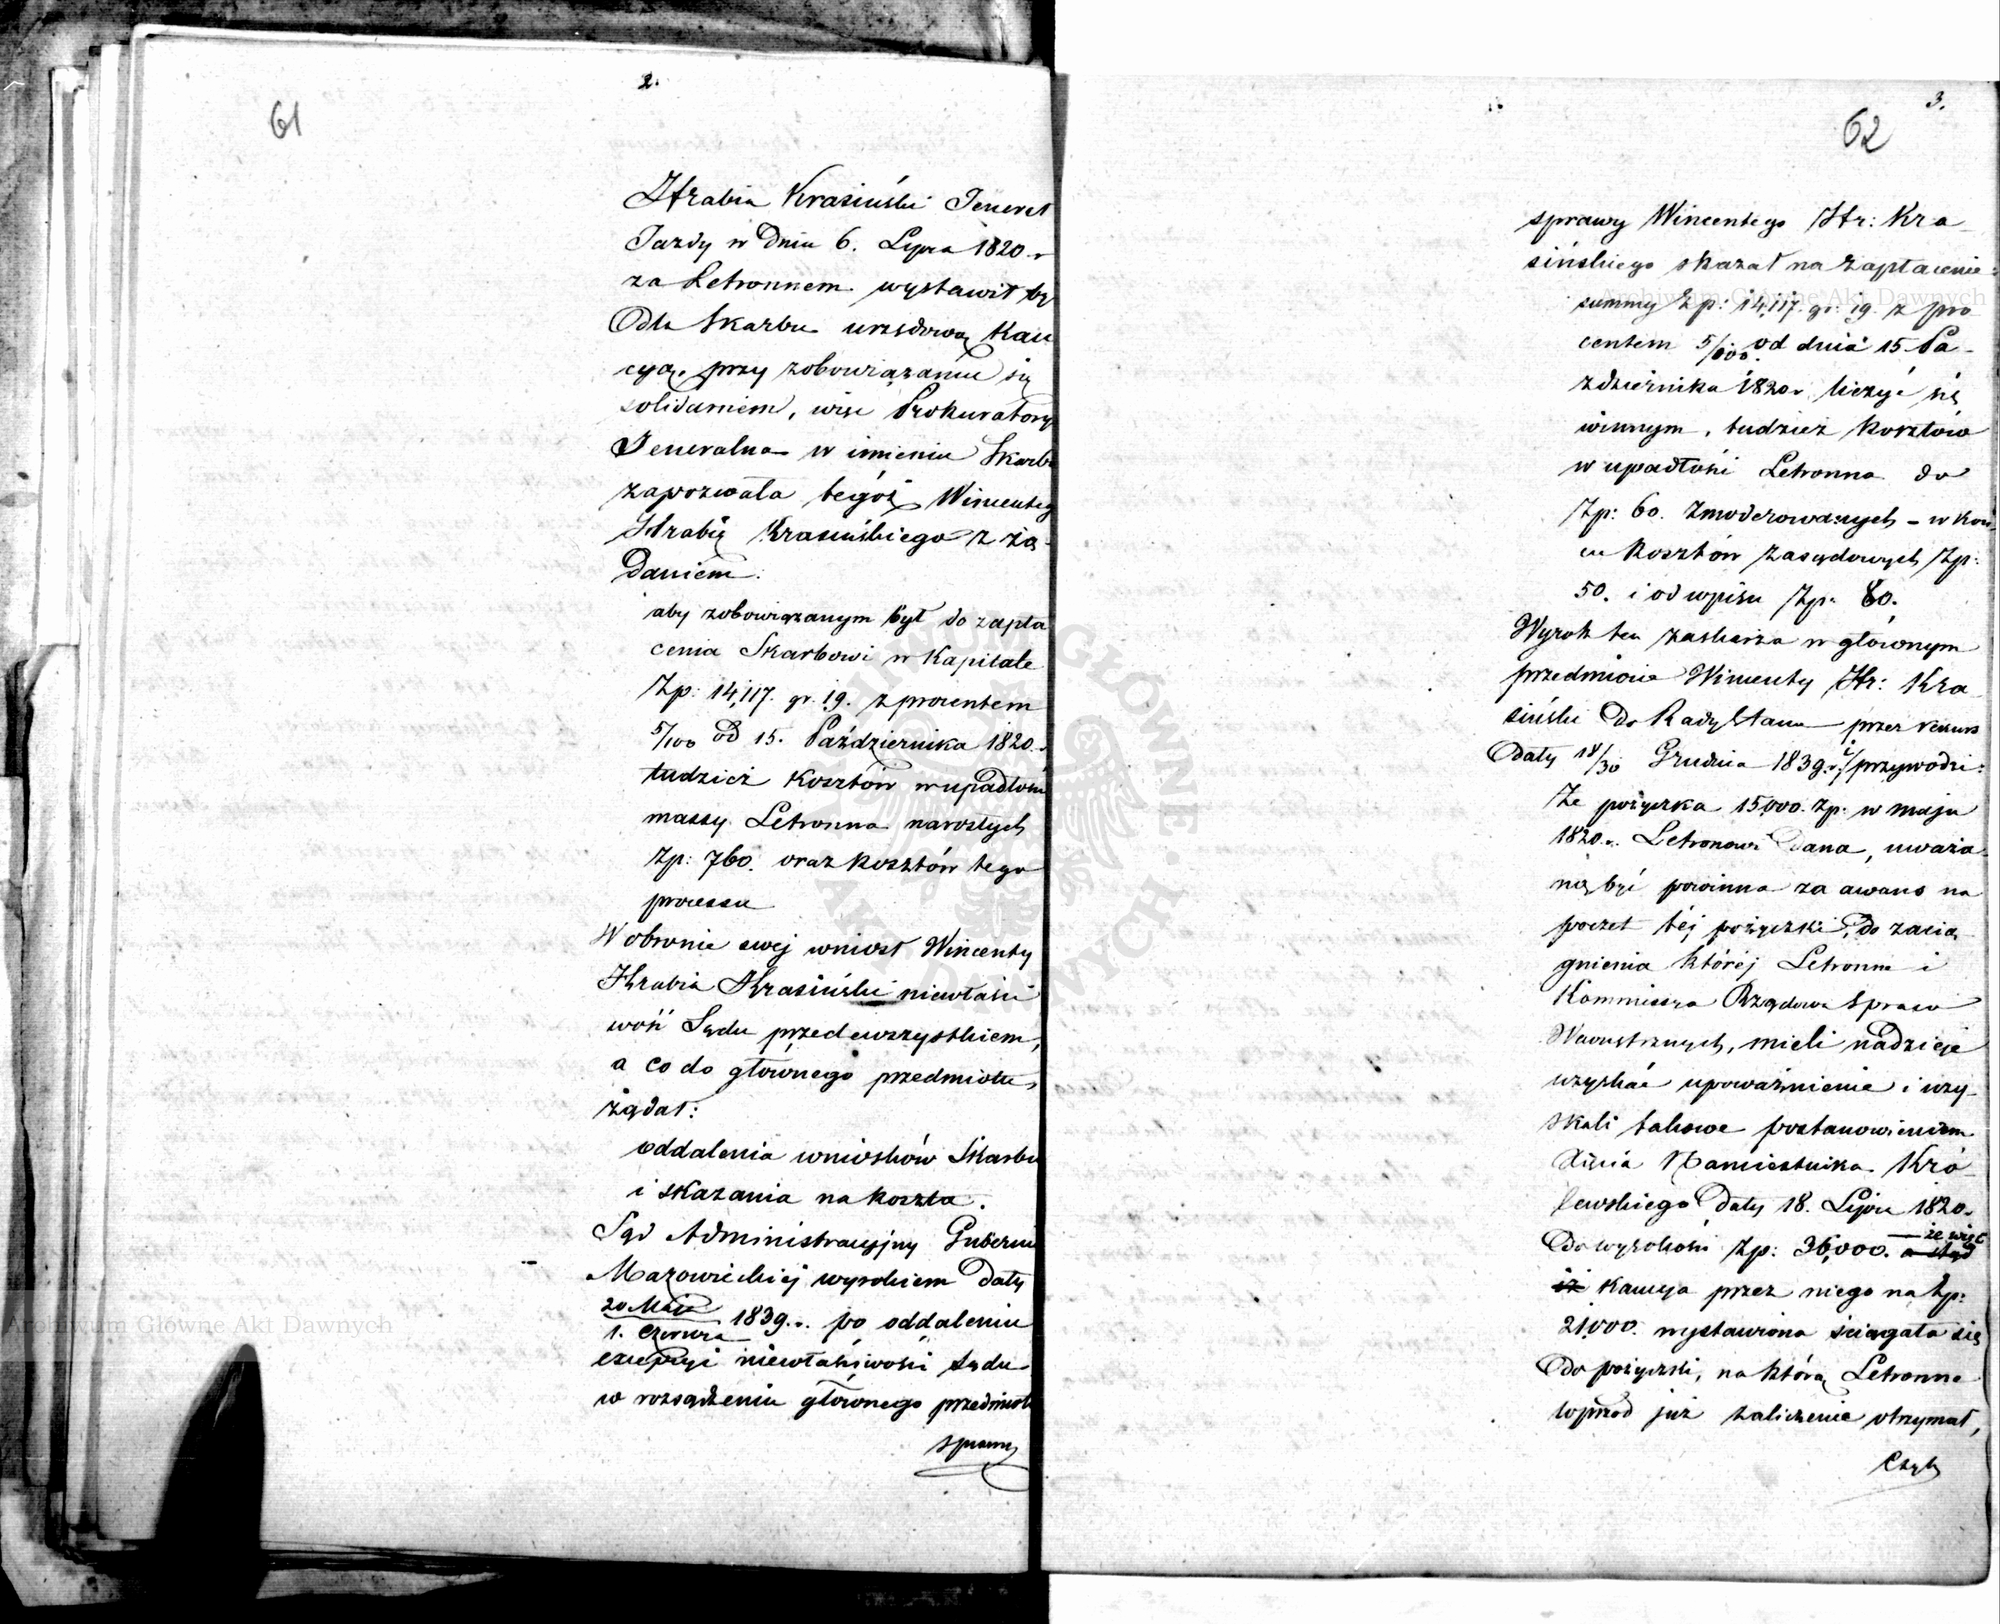 2.
61
Hrabia Krasiński Jenerał
Jazdy w dniu 6. Lipca 1820. r
za Letronnem wystawił by
dla Skarbu urzędową Kau
cyą, przy zobowiązaniu się
solidarnem, więc Prokuratorya
Jeneralna w imieniu Skarbu
zapozwała tegóż Wincentego
Hrabię Krasińskiego z żą-
daniem:
aby zobowiązanym był do zapła
cenia Skarbowi w Kapitale
Zp: 14,117. gr. 19. z procentem
5/100 od 15. Października 1820. r
tudzież Kosztów w upadłości
massy Letronna narosłych
Zp: 760. oraz Kosztów tego
processu
W obronie swej wniosł Wincenty
Hrabia Krasiński niewłaści
wość Sądu przedewszystkiem,
a co do głównego przedmiotu,
żądał:
oddalenia wniosków Skarbu
i skazania na koszta.
Sąd Administracyjny Gubernii
Mazowieckiej wyrokiem daty
20 Maja / 1. Czerwca 1839. r. po oddaleniu
excepcyi niewłaściwości Sądu
w rozsądzeniu głównego przedmiotu
sprawy
3.
62
sprawy Wincentego Hr: Kra-
sińskiego skazał na zapłacenie
summy Zp: 14,117. gr: 19. z pro
centem 5/100 od dnia 15 Pa-
zdziernika 1820 r liczyć się
winnym, tudzież Kosztów
w upadłości Letronna do
Zp: 60. zmoderowanych - w koń
cu Kosztów zasądowych Zp:
50. i od wpisu Zp: 60.
Wyrok ten zaskarża w głównym
przedmiocie Wincenty Hr: Kra-
siński do Rady Stanu przez rekurs
daty 18/30 Grudnia 1839. r. i przywodzi:
Że pożyczka 15,000. Zp: w maju
1820. r. Letronowi dana, uważa-
ną być powinna za awans na
poczet téj pożyczki, do zacią-
gnienia któréj Letronne i
Kommissya Rządowa Spraw
Wewnętrznych, mieli nadzieję
uzyskać upoważnienie i uzy-
skali takowe postanowieniem
Xięcia Namiestnika Kró-
lewskiego daty 18. Lipca 1820.
do wysokości Zp: 36,000. a stąd że więc
iż kaucya przez niego na Zp:
21,000. wystawiona ściągała się
do pożyczki, na którą Letronne
wprzód już zaliczenie otrzymał,
czyli
Archiwum Główne Akt Dawnych
Archiwum Główne Akt Dawnych
ARCHIWUM GŁÓWNE AKT DAWNYCH